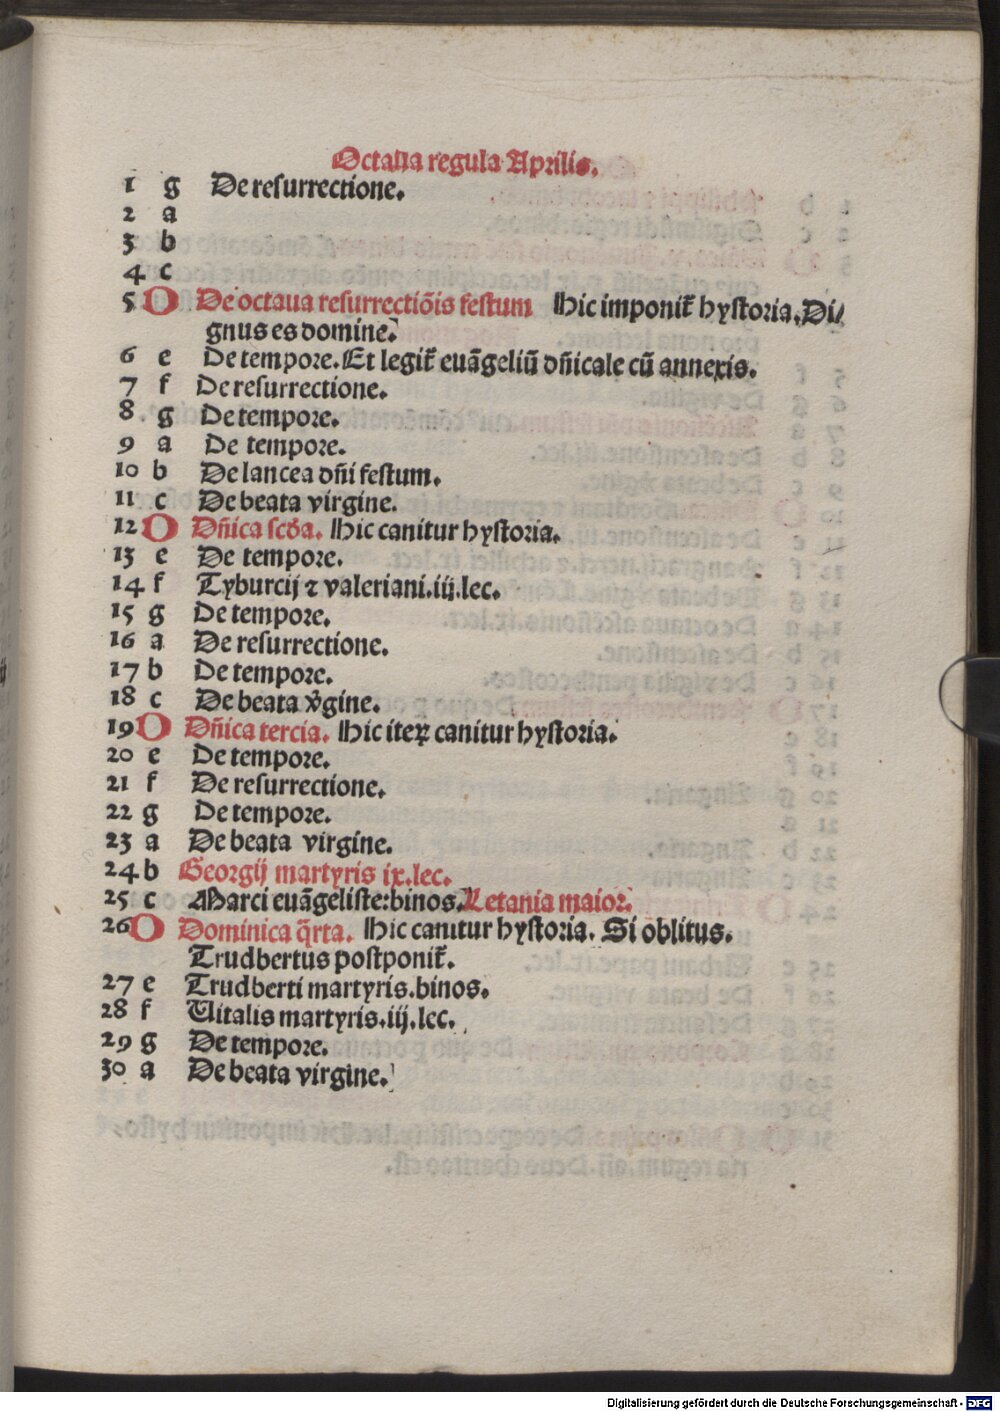 Octaua regula Aprilis.
1 g De resurrectione.
2 a
3 b
4 c
5 D De octaua resurrectiōis festum Hic imponit᷑ hystoria. Di⸗
gnus es domine.
6 e De tempore. Et legit᷑ euāgeliū dñicale cū annexis.
7 f De resurrectione.
8 g De tempore.
9 a De tempore.
10 b De lancea dñi festum.
11 c De beata virgine.
12 D Dñica scďa. Hic canitur hystoria.
13 e De tempore.
14 f Tyburcij ⁊ valeriani. iij. lec.
15 g De tempore.
16 a De resurrectione.
17 b De tempore.
18 c De beata v̓gine.
19 D Dñica tercia. Hic iteꝝ canitur hystoria.
20 e De tempore.
21 f De resurrectione.
22 g De tempore.
23 a De beata virgine.
24 b Georgij martyris ix. lec.
25 c Marci euāgeliste: binos. Letania maior.
26 D Dominica q̄rta. Hic canitur hystoria. Si oblitus.
Trudbertus postponit᷑.
27 e Trudberti martyris. binos.
28 f Uitalis martyris. iij. lec.
29 g De tempore.
30 a De beata virgine.
Digitalisierung gefördert durch die Deutsche Forschungsgemeinschaft - DFG